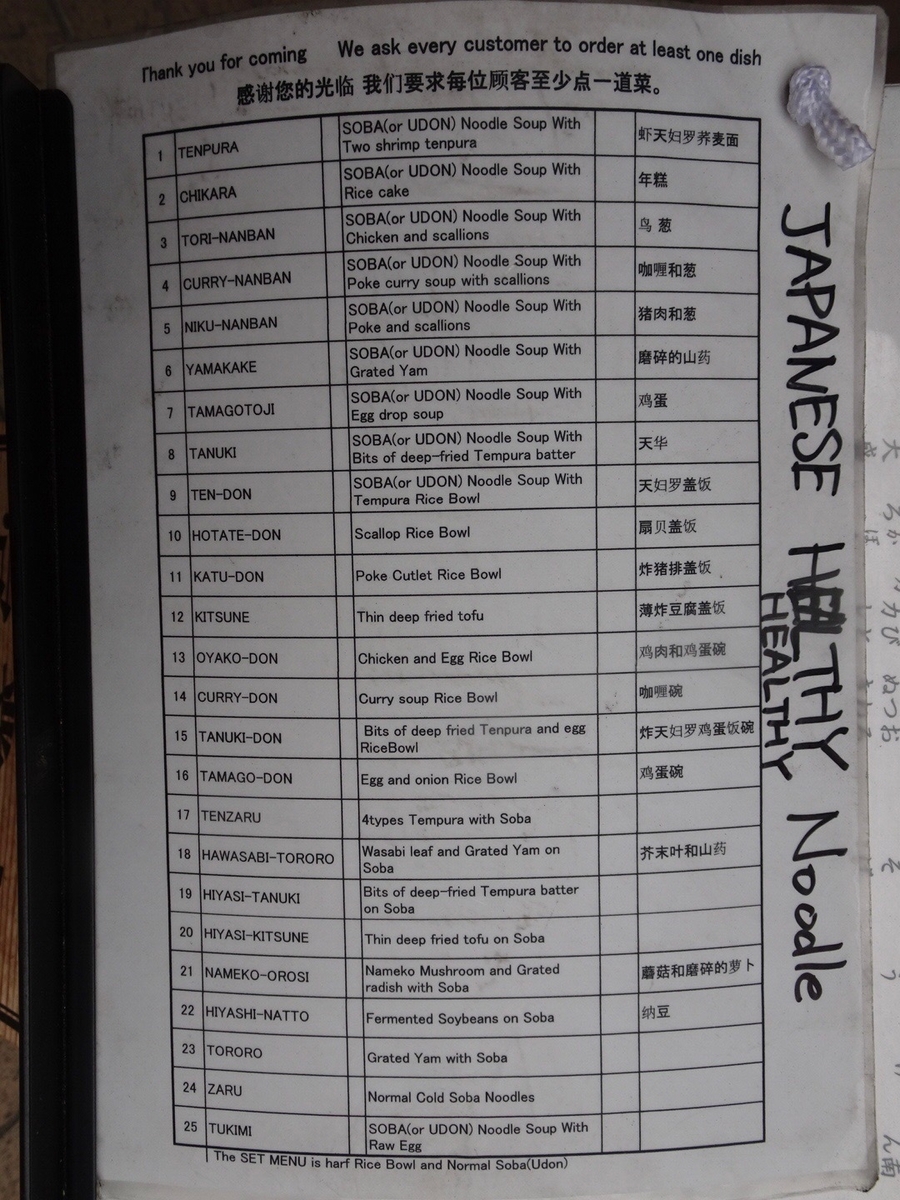 Thank you for coming We ask every customer to order at least one dish
感谢您的光临 我们要求每位顾客至少点一道菜。
1 TENPURA SOBA(or UDON) Noodle Soup With 虾天妇罗荞麦面
Two shrimp tenpura
2 CHIKARA SOBA(or UDON) Noodle Soup With 年糕
Rice cake
3 TORI-NANBAN SOBA(or UDON) Noodle Soup With 鸟 葱
Chicken and scallions
4 CURRY-NANBAN SOBA(or UDON) Noodle Soup With 咖喱和葱
Poke curry soup with scallions
5 NIKU-NANBAN SOBA(or UDON) Noodle Soup With 猪肉和葱
Poke and scallions
6 YAMAKAKE SOBA(or UDON) Noodle Soup With 磨碎的山药
Grated Yam
7 TAMAGOTOJI SOBA(or UDON) Noodle Soup With 鸡蛋
Egg drop soup
8 TANUKI SOBA(or UDON) Noodle Soup With 天华
Bits of deep-fried Tempura batter
9 TEN-DON SOBA(or UDON) Noodle Soup With 天妇罗盖饭
Tempura Rice Bowl
10 HOTATE-DON Scallop Rice Bowl 扇贝盖饭
11 KATU-DON Poke Cutlet Rice Bowl 炸猪排盖饭
12 KITSUNE Thin deep fried tofu 薄炸豆腐盖饭
13 OYAKO-DON Chicken and Egg Rice Bowl 鸡肉和鸡蛋碗
14 CURRY-DON Curry soup Rice Bowl 咖喱碗
15 TANUKI-DON Bits of deep fried Tenpura and egg 炸天妇罗鸡蛋饭碗
RiceBowl
16 TAMAGO-DON Egg and onion Rice Bowl 鸡蛋碗
17 TENZARU 4types Tempura with Soba
18 HAWASABI-TORORO Wasabi leaf and Grated Yam on 芥末叶和山药
Soba
19 HIYASI-TANUKI Bits of deep-fried Tempura batter
on Soba
20 HIYASI-KITSUNE Thin deep fried tofu on Soba
21 NAMEKO-OROSI Nameko Mushroom and Grated 蘑菇和磨碎的萝卜
radish with Soba
22 HIYASHI-NATTO Fermented Soybeans on Soba 纳豆
23 TORORO Grated Yam with Soba
24 ZARU Normal Cold Soba Noodles
25 TUKIMI SOBA(or UDON) Noodle Soup With
Raw Egg
The SET MENU is harf Rice Bowl and Normal Soba(Udon)
JAPANESE HELTHY Noodle
HEALTHY